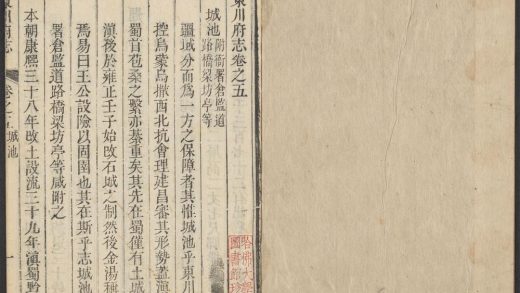 東川府志卷之五
城池 附衙署倉監道路橋梁坊亭等
疆域分而爲一方之保障者其惟城池乎東川
控烏蒙烏撒西北抗會理建昌審其形勢蓋滇
蜀首苞桑之繫亦綦重矣其先在蜀僅有土城
滇後於雍正壬子始改石城之制然後金湯
焉易曰王公設險以固國也其在斯乎志城池
署倉監道路橋梁坊亭等咸附之
本朝康熙三十八年改土設流三十九年滇蜀黔
卷之五 城池
一
哈佛大學
圖書館珍